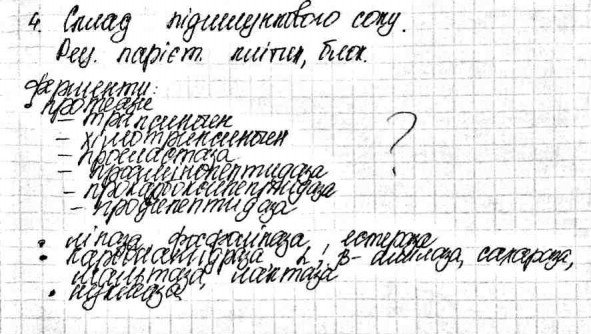 4. Склад підшлункового соку.
Рец. парієт. клітин, блок.
ферменти:
• протеази
– трипсиноген
– хімотрипсиноген
– проеластаза
– проамінопептидаза
– прокарбоксипептидаза
– продипептидаза
?
• ліпаза, фосфоліпаза, естераза
• карбогідраза α, β- амілаза, сахараза,
мальтаза, лактаза
• нуклеаза